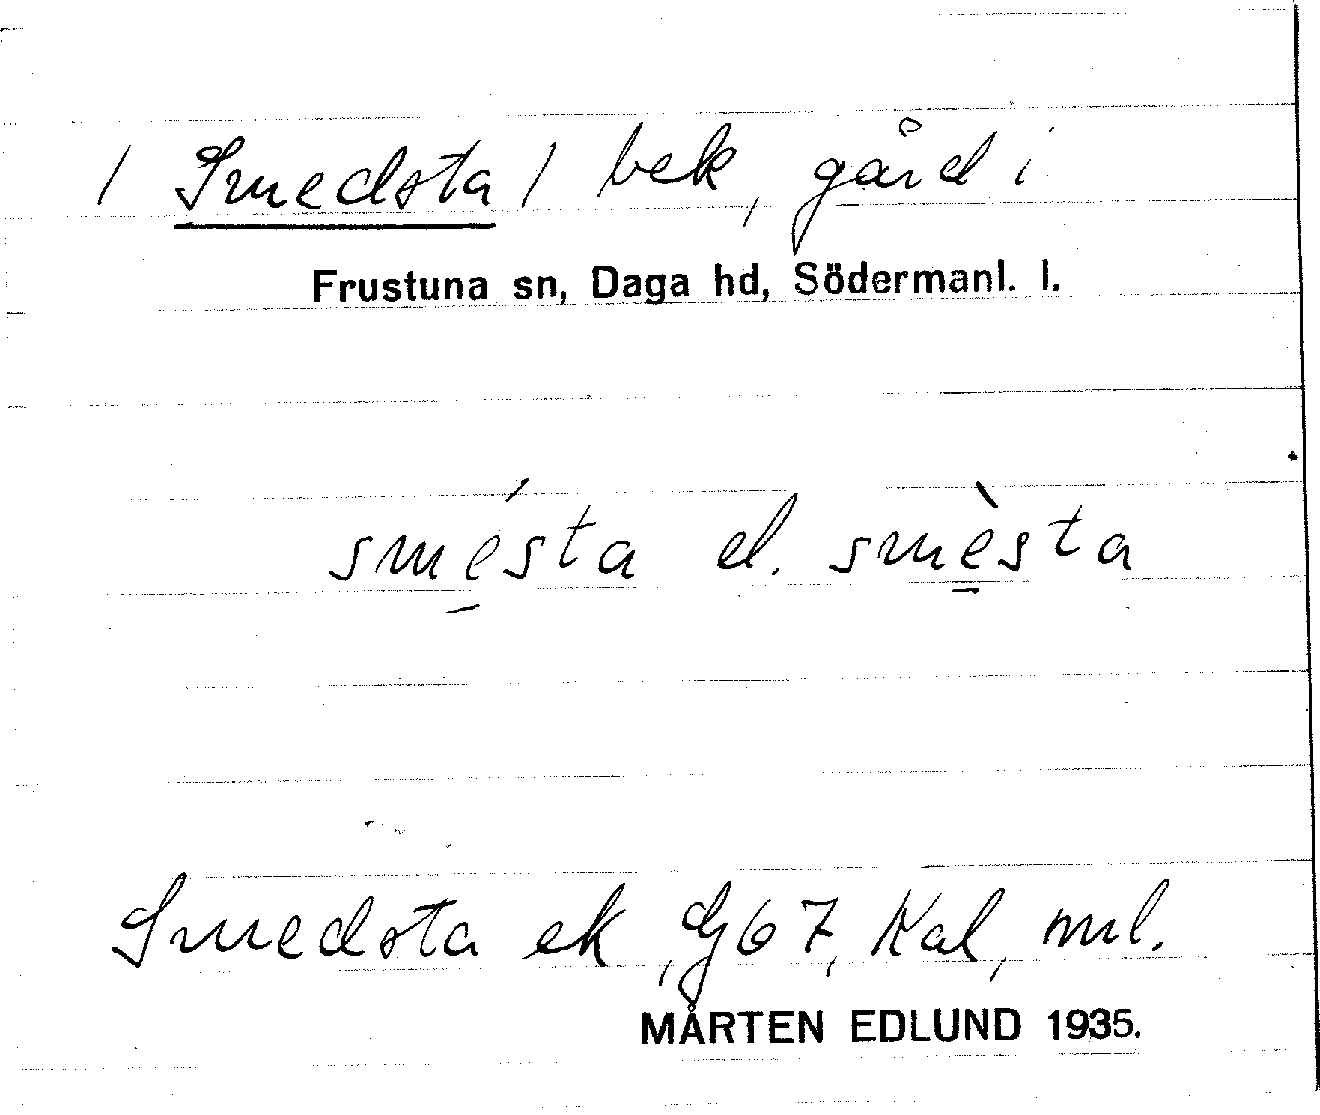 / Smedsta / bek, gård i
Frustuna sn, Daga hd, Södermanl. l.
smésta el. smèsta
Smedsta ek, Gj 67, Kal, ml.
MÅRTEN EDLUND 1935.